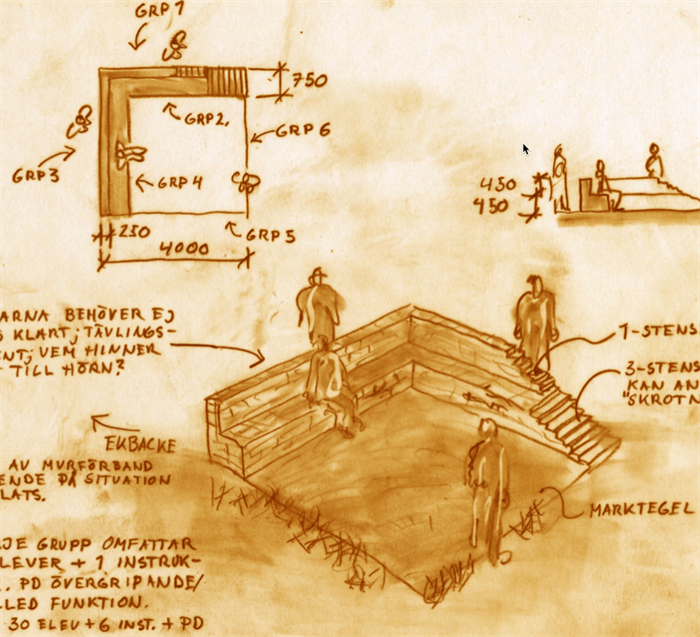 GRP1
750
GRP2,
GRP6
GRP3
GRP4
GRP5
230
4000
450
450
ARNA BEHÖVER EJ
S KLART; TÄVLINGS-
ENT; VEM HINNER
TILL HÖRN?
1-STENS
3-STENS
KAN AN
"SKROTN
EKBACKE
AV MURFÖRBAND
ENDE PÅ SITUATION
LATS.
MARKTEGEL
JE GRUPP OMFATTAR
LEVER + 1 INSTRUK-
. PD ÖVERGRIPANDE/
LLED FUNKTION.
30 ELEV + 6 INST. + PD